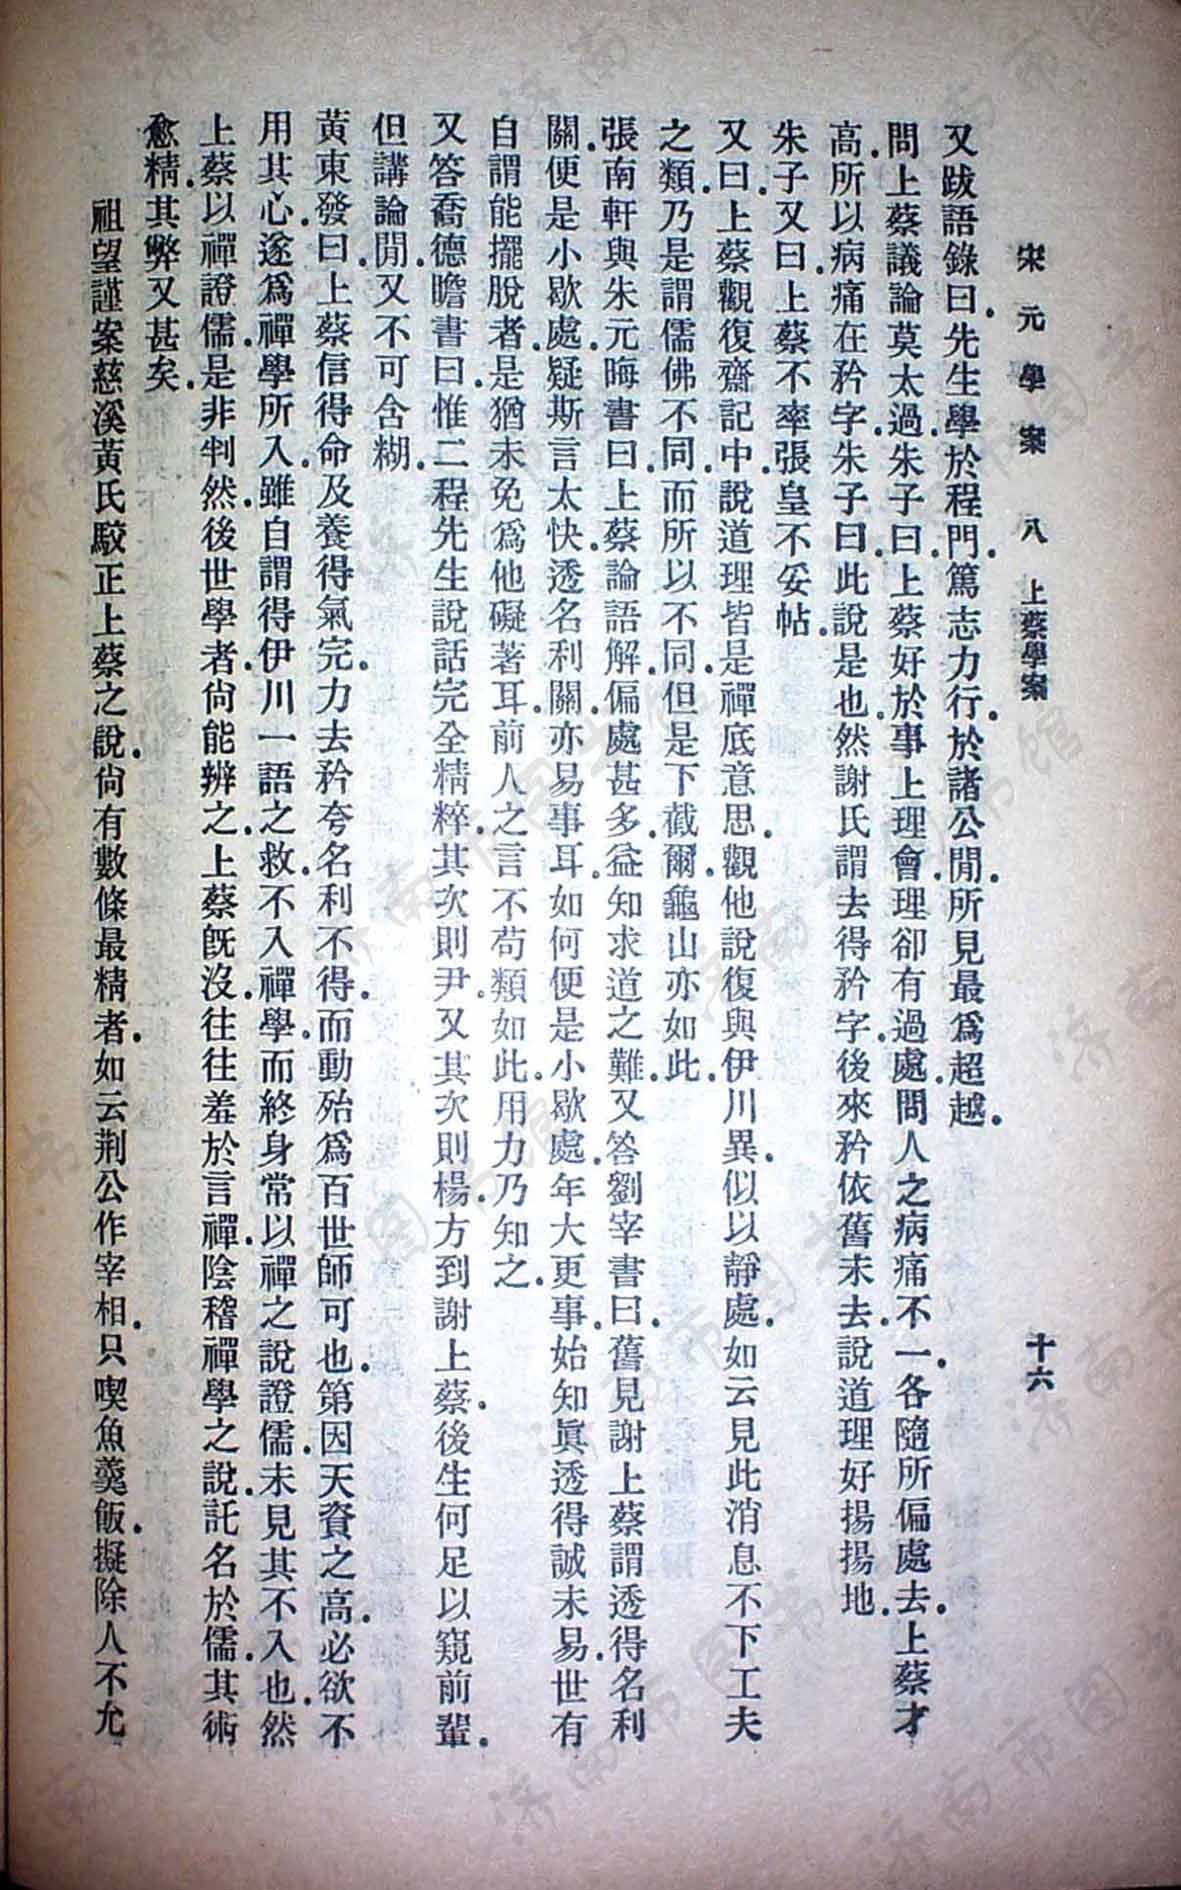 宋元學案 八 上蔡學案 十六
又跋語錄曰.先生學於程門.篤志力行.於諸公閒.所見最爲超越.
問上蔡議論莫太過.朱子曰.上蔡好於事上理會.理卻有過處.問人之病痛不一.各隨所偏處去.上蔡才
高.所以病痛在矜字.朱子曰.此說是也.然謝氏謂去得矜字.後來矜依舊未去.說道理好揚揚地.
朱子又曰.上蔡不率.張皇不妥帖.
又曰.上蔡觀復齋記中.說道理皆是禪底意思.觀他說復與伊川異.似以靜處.如云見此消息不下工夫
之類.乃是謂儒佛不同.而所以不同.但是下截爾.龜山亦如此.
張南軒與朱元晦書曰.上蔡論語解.偏處甚多.益知求道之難.又答劉宰書曰.舊見謝上蔡謂透得名利
關.便是小歇處.疑斯言太快.透名利關.亦易事耳.如何便是小歇處.年大更事.始知眞透得誠未易.世有
自謂能擺脫者.是猶未免爲他礙著耳.前人之言不苟類如此.用力乃知之.
又答喬德瞻書曰.惟二程先生說話完全精粹.其次則尹.又其次則楊.方到謝上蔡.後生何足以窺前輩.
但講論閒.又不可含糊.
黃東發曰.上蔡信得命及.養得氣完.力去矜夸.名利不得.而動殆爲百世師可也.第因天資之高.必欲不
用其心.遂爲禪學所入.雖自謂得伊川一語之救.不入禪學.而終身常以禪之說證儒.未見其不入也.然
上蔡以禪證儒.是非判然.後世學者.尙能辨之.上蔡旣沒.往往羞於言禪.陰稽禪學之說.託名於儒.其術
愈精.其弊又甚矣.
祖望謹案慈溪黃氏駁正上蔡之說.尙有數條最精者.如云荆公作宰相.只喫魚羹飯.擬除人不允